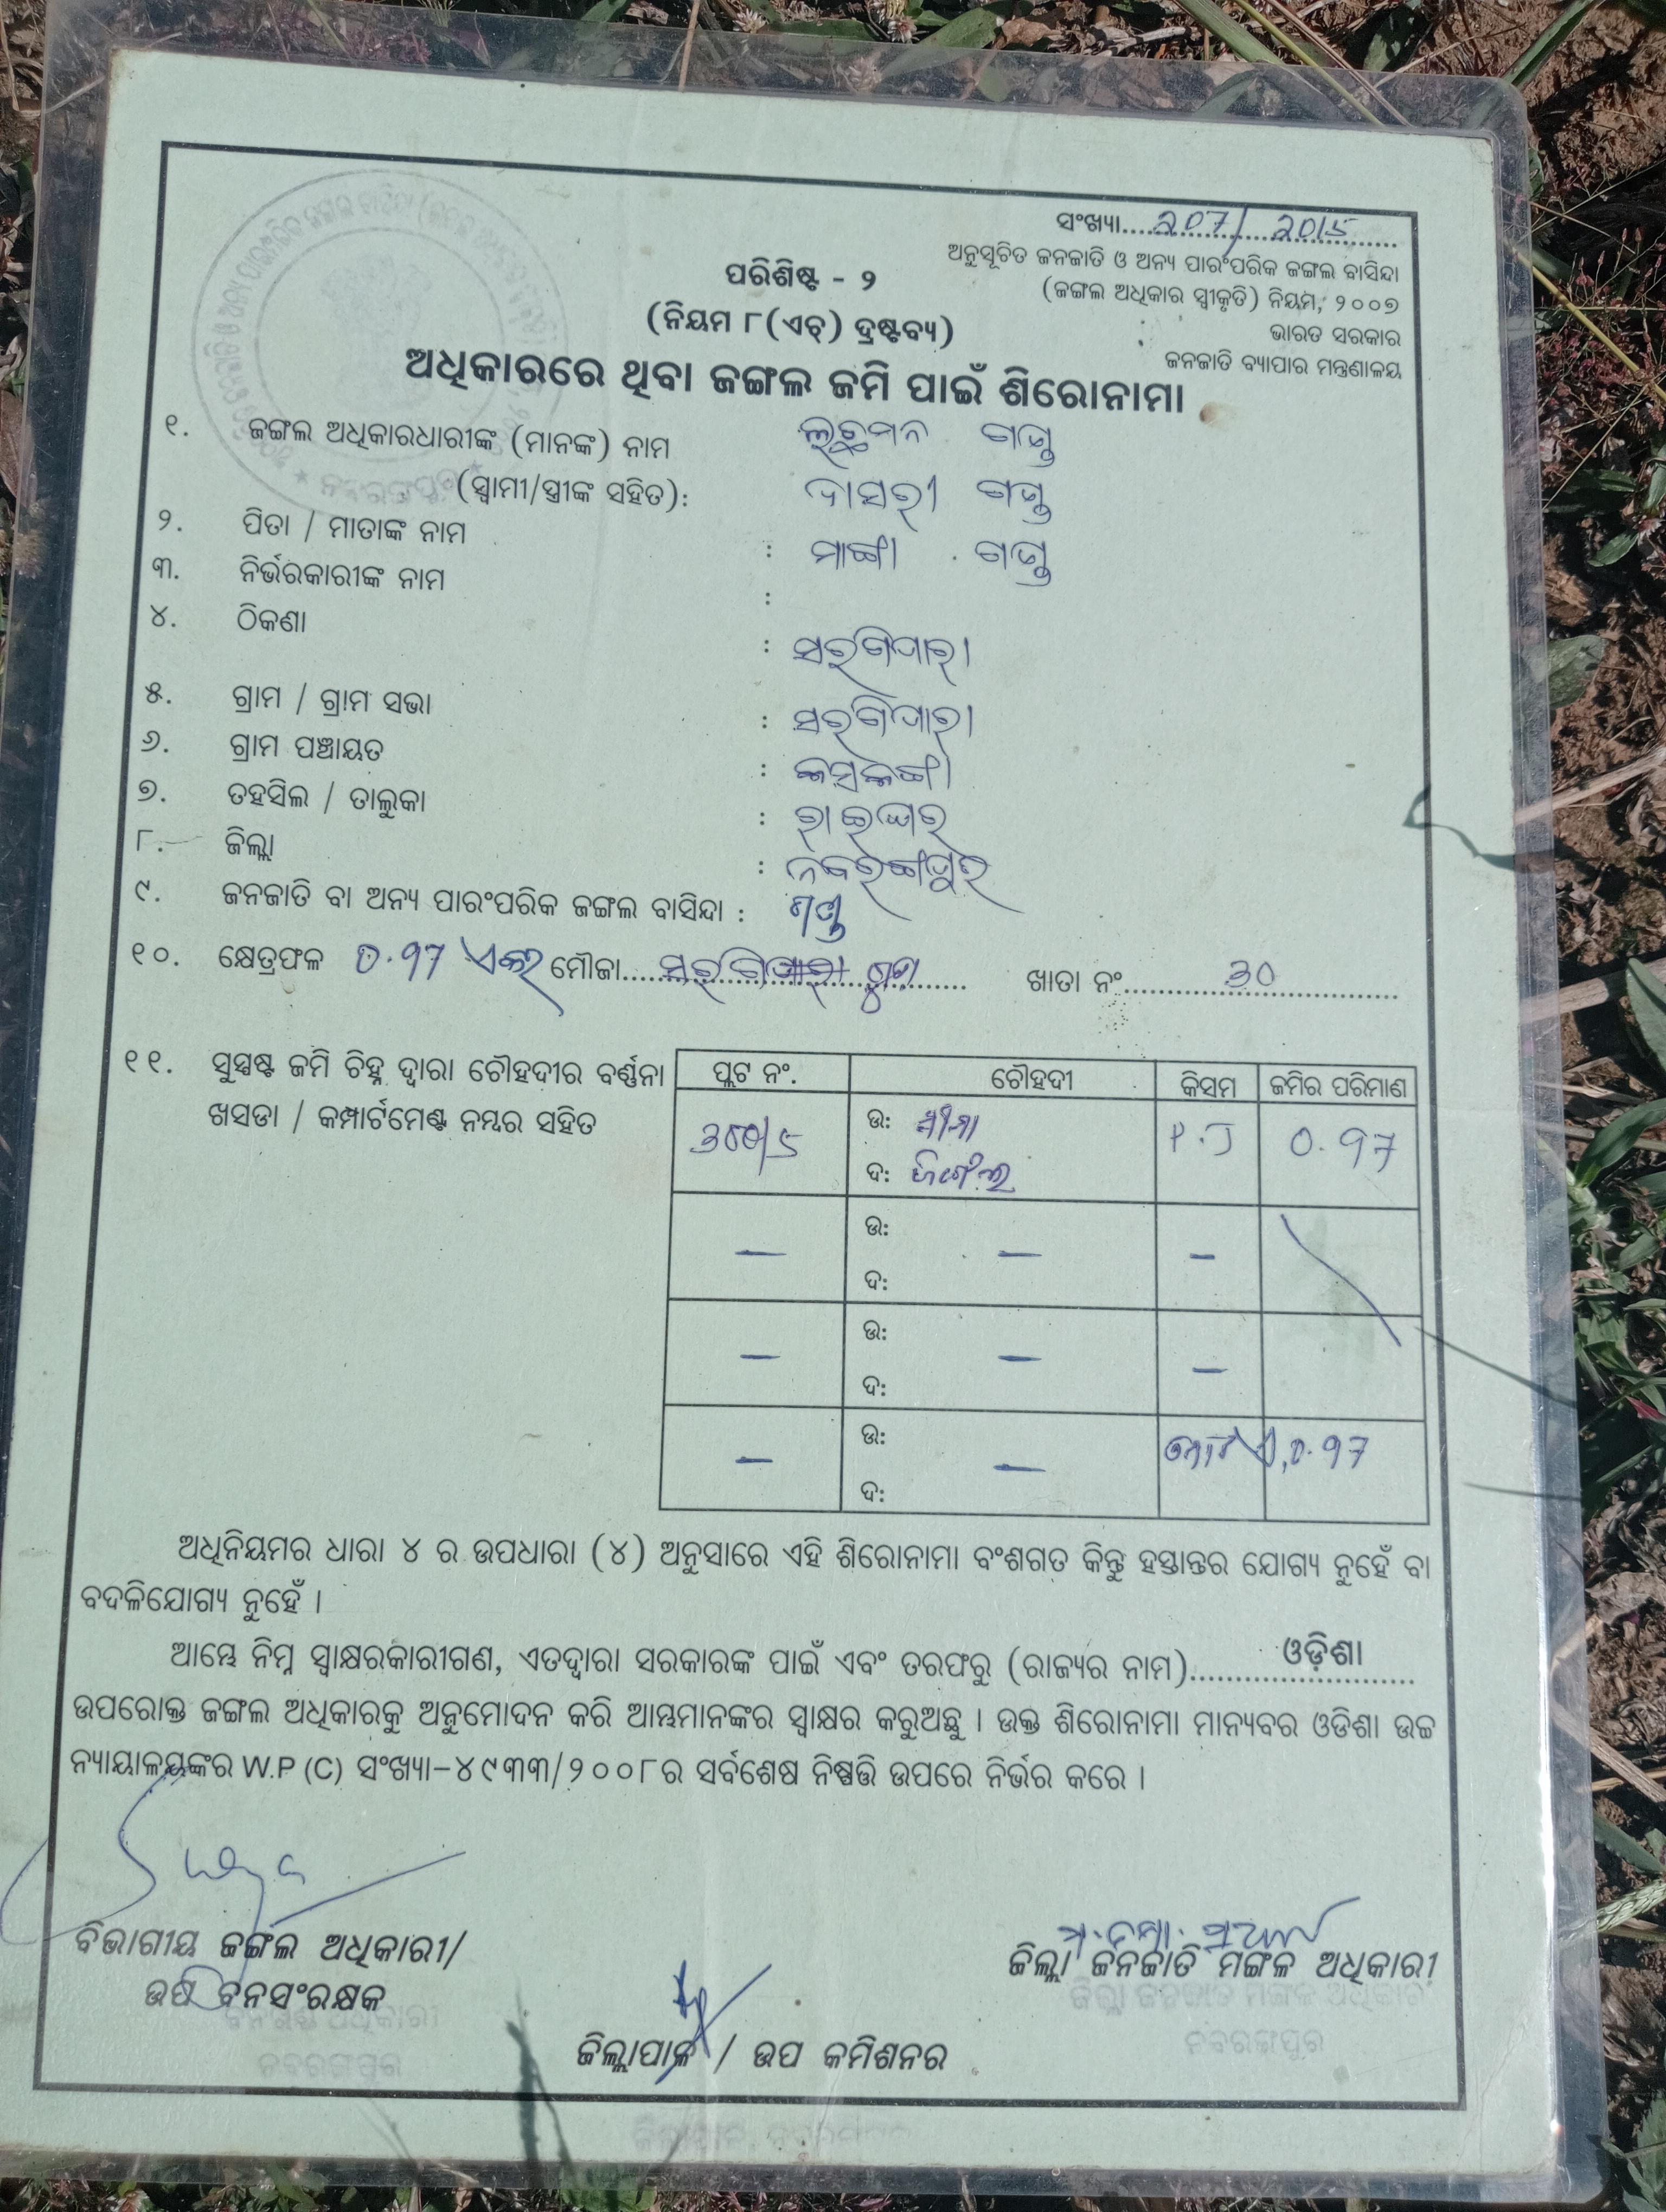 ସଂଖ୍ୟା 207/2015
ଅନୁସୂଚିତ ଜନଜାତି ଓ ଅନ୍ୟ ପାରଂପରିକ ଜଙ୍ଗଲ ବାସିନ୍ଦା
(ଜଙ୍ଗଲ ଅଧିକାର ସ୍ୱୀକୃତି) ନିୟମ, ୨୦୦୭
ଭାରତ ସରକାର
ଜନଜାତି ବ୍ୟାପାର ମନ୍ତ୍ରଣାଳୟ
ପରିଶିଷ୍ଟ - ୨
(ନିୟମ ୮(ଏଚ୍) ଦ୍ରଷ୍ଟବ୍ୟ)
ଅଧିକାରରେ ଥିବା ଜଙ୍ଗଲ ଜମି ପାଇଁ ଶିରୋନାମା
୧. ଜଙ୍ଗଲ ଅଧିକାରଧାରୀଙ୍କ (ମାନଙ୍କ) ନାମ ଲଛମନ ଗଣ୍ଡ
(ସ୍ୱାମୀ/ସ୍ତ୍ରୀଙ୍କ ସହିତ): ଦାସରୀ ଗଣ୍ଡ
୨. ପିତା / ମାତାଙ୍କ ନାମ : ମାଙ୍ଗୀ ଗଣ୍ଡ
୩. ନିର୍ଭରକାରୀଙ୍କ ନାମ :
୪. ଠିକଣା : ସରଗିପାରା
୫. ଗ୍ରାମ / ଗ୍ରାମ ସଭା : ସରଗିପାରା
୬. ଗ୍ରାମ ପଞ୍ଚାୟତ :
୭. ତହସିଲ / ତାଲୁକା : ରାଇଘର
୮. ଜିଲ୍ଲା : ନବରଙ୍ଗପୁର
୯. ଜନଜାତି ବା ଅନ୍ୟ ପାରଂପରିକ ଜଙ୍ଗଲ ବାସିନ୍ଦା : ଗଣ୍ଡ
୧୦. କ୍ଷେତ୍ରଫଳ 0.97 ଏକର ମୌଜା ସରଗିପାରା ଖାତା ନଂ 30
୧୧. ସୁସ୍ପଷ୍ଟ ଜମି ଚିହ୍ନ ଦ୍ୱାରା ଚୌହଦୀର ବର୍ଣ୍ଣନା
ଖସଡା / କମ୍ପାର୍ଟମେଣ୍ଟ ନମ୍ବର ସହିତ
ପ୍ଲଟ ନଂ. ଚୌହଦୀ କିସମ ଜମିର ପରିମାଣ
ଉ: ସୀମା P.J 0.97
ଦ: ଜଙ୍ଗଲ
— ଉ: — —
ଦ:
— ଉ: — —
ଦ:
— ଉ: — 0.97
ଦ:
ଅଧିନିୟମର ଧାରା ୪ ର ଉପଧାରା (୪) ଅନୁସାରେ ଏହି ଶିରୋନାମା ବଂଶଗତ କିନ୍ତୁ ହସ୍ତାନ୍ତର ଯୋଗ୍ୟ ନୁହେଁ ବା
ବଦଳିଯୋଗ୍ୟ ନୁହେଁ ।
ଆମ୍ଭେ ନିମ୍ନ ସ୍ୱାକ୍ଷରକାରୀଗଣ, ଏତଦ୍ୱାରା ସରକାରଙ୍କ ପାଇଁ ଏବଂ ତରଫରୁ (ରାଜ୍ୟର ନାମ) ଓଡ଼ିଶା
ଉପରୋକ୍ତ ଜଙ୍ଗଲ ଅଧିକାରକୁ ଅନୁମୋଦନ କରି ଆମ୍ଭମାନଙ୍କର ସ୍ୱାକ୍ଷର କରୁଅଛୁ । ଉକ୍ତ ଶିରୋନାମା ମାନ୍ୟବର ଓଡିଶା ଉଚ୍ଚ
ନ୍ୟାୟାଳୟଙ୍କର W.P (C) ସଂଖ୍ୟା-୪୯୩୩/୨୦୦୮ର ସର୍ବଶେଷ ନିଷ୍ପତ୍ତି ଉପରେ ନିର୍ଭର କରେ ।
ବିଭାଗୀୟ ଜଙ୍ଗଲ ଅଧିକାରୀ/
ଉପ ବନସଂରକ୍ଷକ
ଜିଲ୍ଲା ଜନଜାତି ମଙ୍ଗଳ ଅଧିକାରୀ
ଜିଲ୍ଲା ଜନଜାତି ମଙ୍ଗଳ ଅଧିକାରୀ
ନବରଙ୍ଗପୁର
ନବରଙ୍ଗପୁର
ଜିଲ୍ଲାପାଳ / ଉପ କମିଶନର